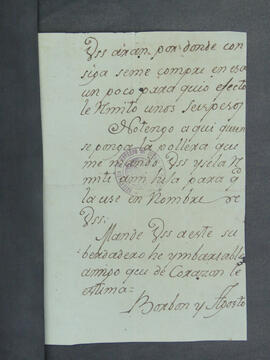 Vss aran por donde con
siga seme compre en esa
un poco para cuio efecto
le Rmito unos seis pesos
No tengo a qui quien
se ponga la pollera que
me mando Vss y se la R
miti a mi hija para q
la use en Nombre de
Vss:
Mande Vss a este su
berdadero he ymbariable
amigo que de Corazon le
estima=
Borbon y Agosto